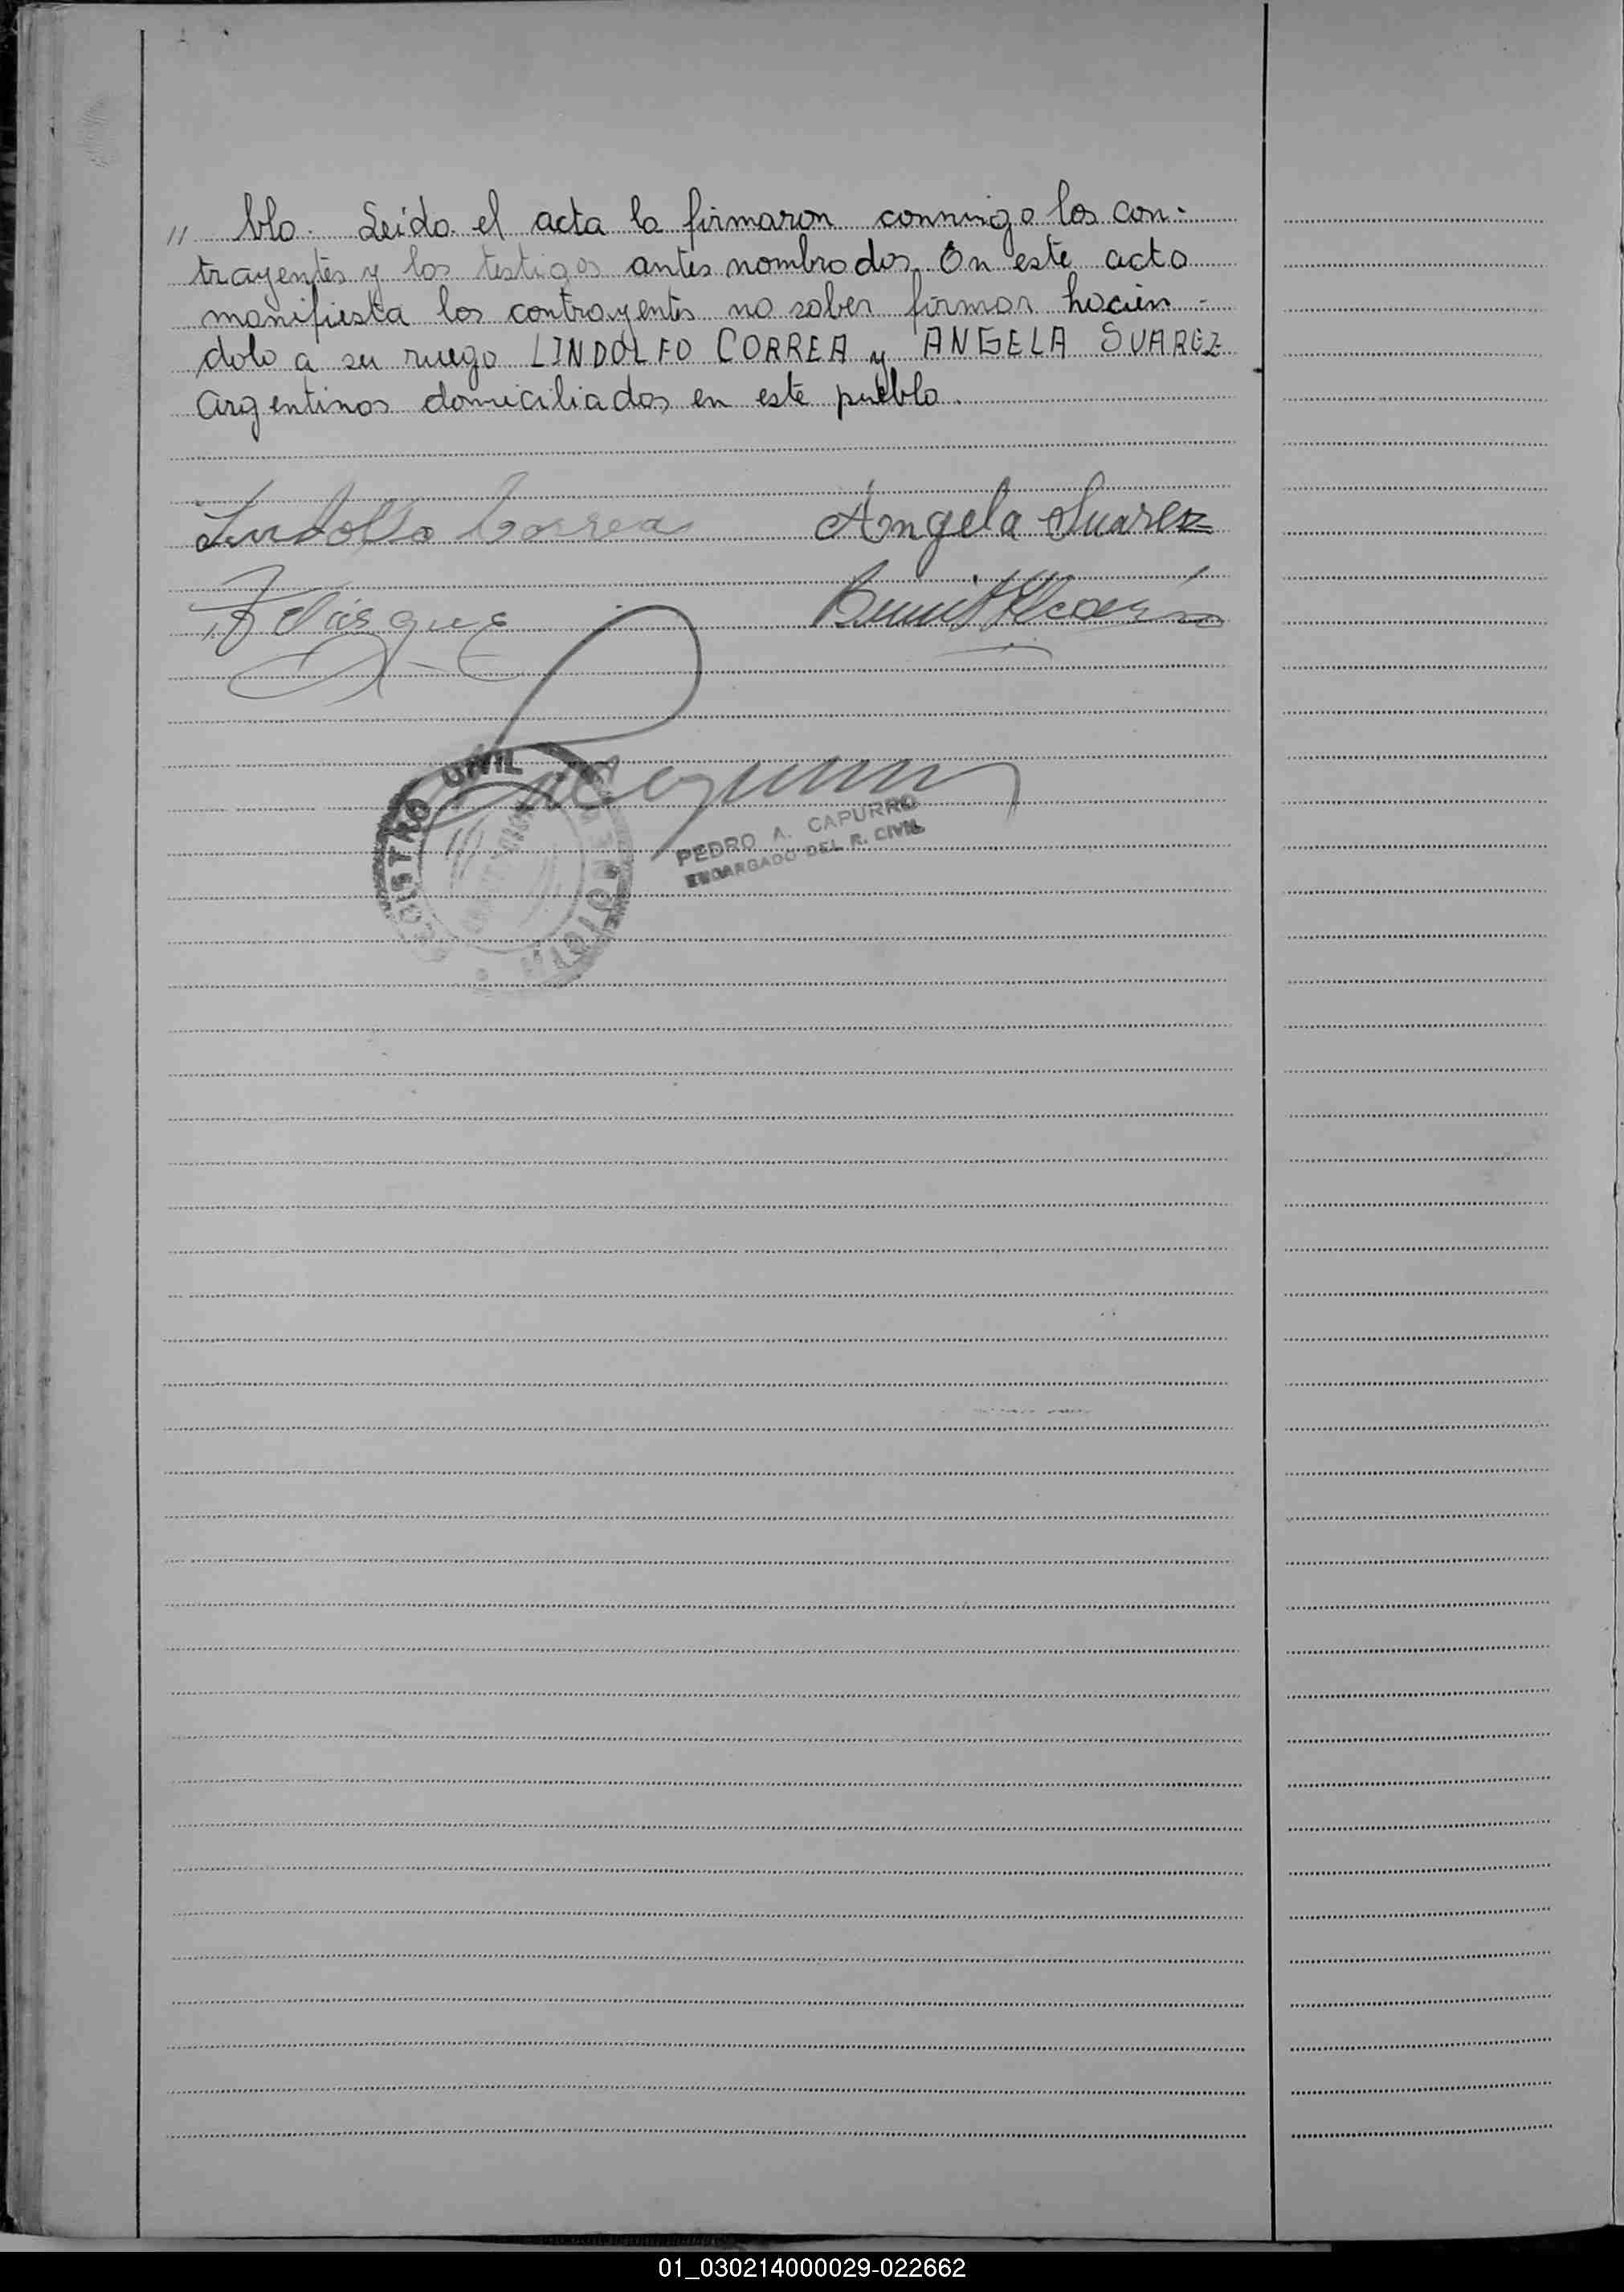 " blo. Leida el acta la firmaron conmigo los con-
trayentes y los testigos antes nombrados. En este acto
manifiesta los contrayentes no saber firmar hacien-
dolo a su ruego LINDOLFO CORREA y ANGELA SUAREZ
Argentinos domiciliados en este pueblo.
Lindolfo Correa Angela Suarez
REGISTRO CIVIL
PEDRO A. CAPURRO
ENCARGADO DEL R. CIVIL
01_030214000029-022662